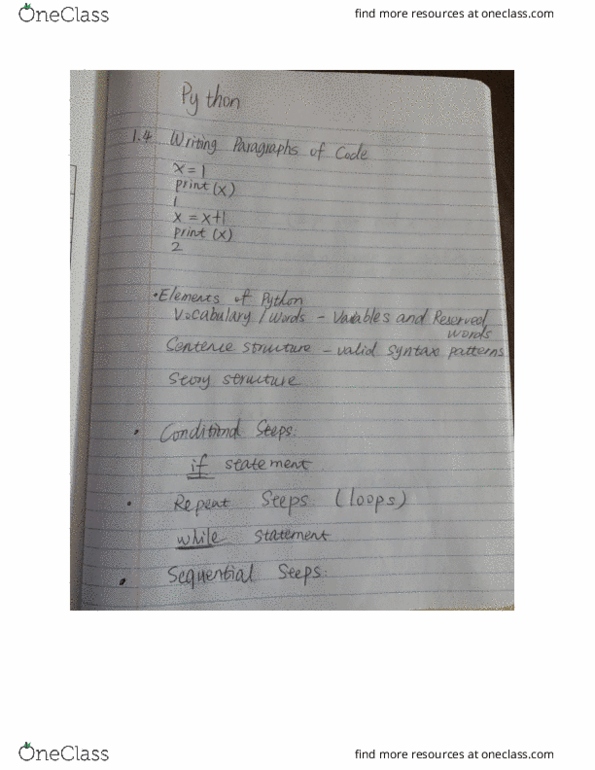 OneClass
find more resources at oneclass.com
Python
1.4 Writing Paragraphs of Code
x = 1
print (x)
1
x = x+1
print (x)
2
• Elements of Python
Vocabulary / Words - Variables and Reserved
words
Sentence structure - valid syntax patterns
Story structure
• Conditional Steps:
if statement
• Repeat Steps (loops)
while statement
• Sequential Steps:
OneClass
find more resources at oneclass.com